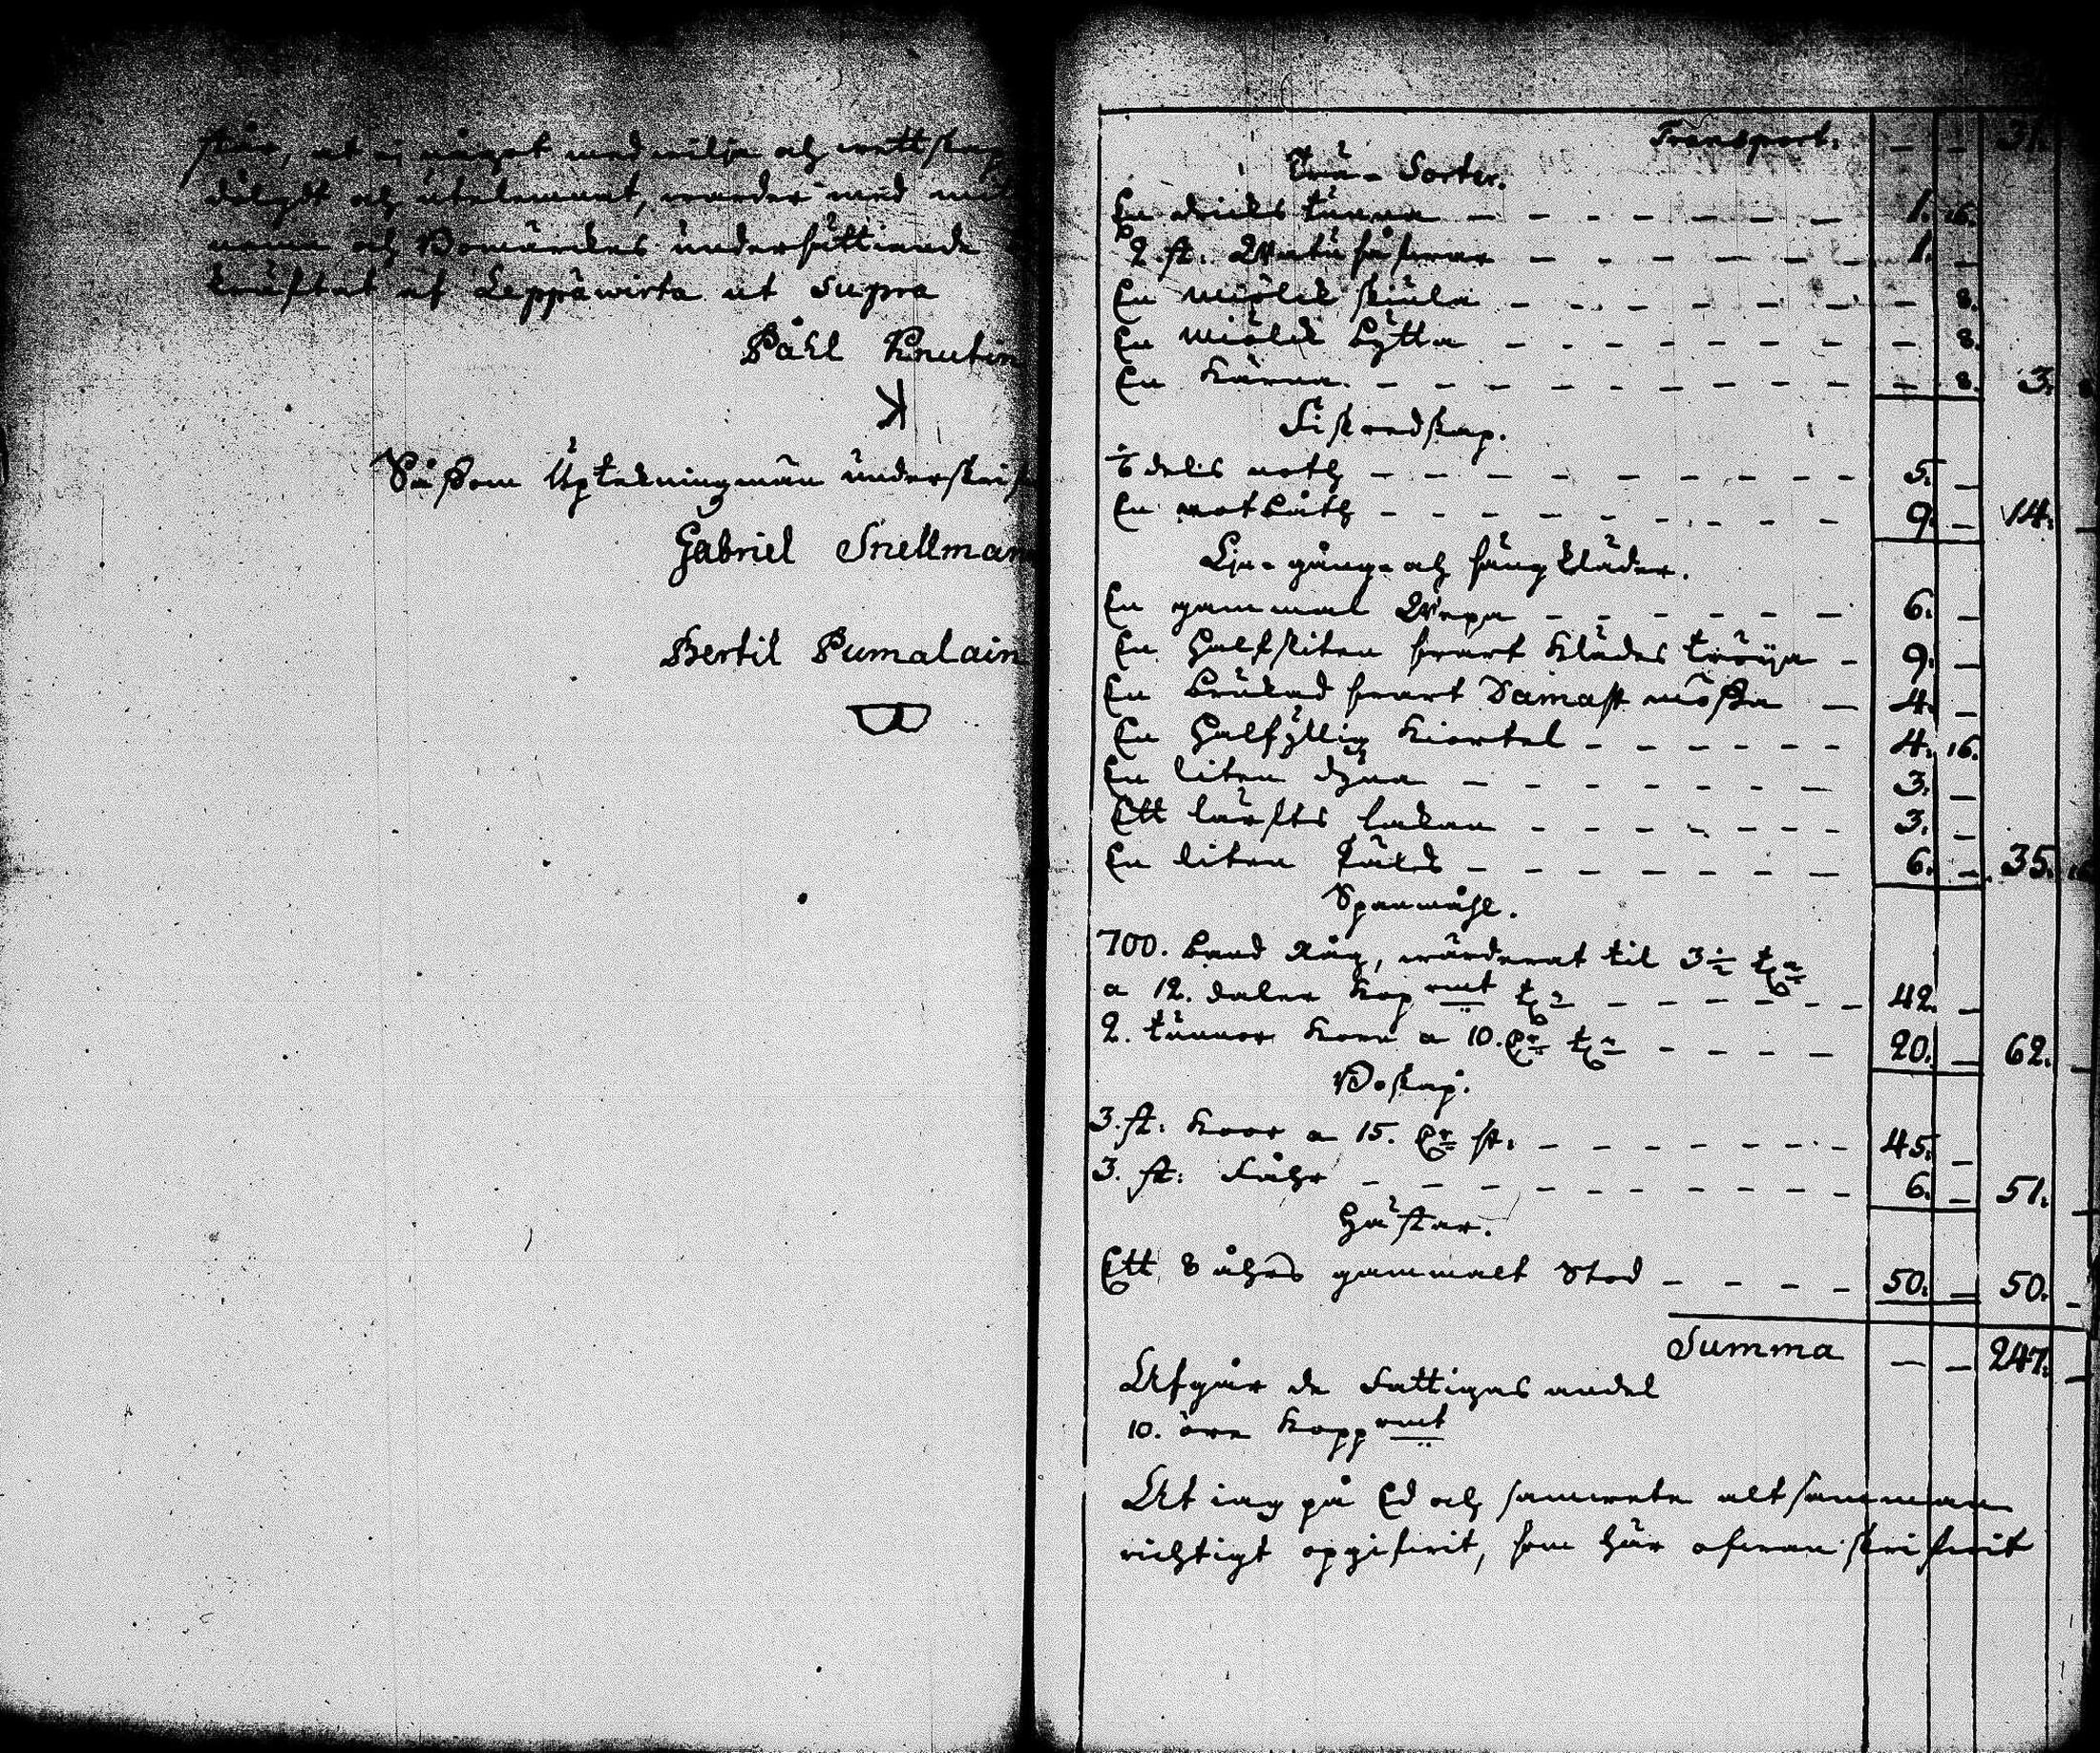 står, at ej något med wilja och wettskap
dölgdt och utelemnat, warder med mit
namn och Bomärckes undersättiande
kräftat af Leppäwirta ut supra
Påhl Knutin
Såsom Uptekningmän underskrif
Gabriel Snellman
Bertil Pumalain
Transport. — — 31.
Trä-Sorter.
En dricks tunna — 1. 16.
2. st. Watu såswar — 1. —
En miölck skiula — — 8.
En miölck bytta — — 8.
En Kärna — — 8. 3.
Fiskredskap.
1/6 dels noth — 5. —
En notbåth — 9. — 14. —
Lin- gång- och sängkläder.
En gammal Wepa — 6. —
En halfsliten swart Klädes tröija — 9. —
En brukad swart Damast mössa — 4. —
En halfyllig Kiortel — 4. 16.
En liten dyna — 3. —
Ett lärfts lakan — 3. —
En liten Fäld — 6. — 35. 16
Spanmåhl.
700. band Råg, wärderat til 3 1/2 tna
a 12. daler Kopmt tn — 42. —
2. tunnor Korn a 10. Dr tn — 20. — 62. —
Boskap.
3. st: Koor a 15. Dr st: — 45. —
3. st: Fåhr — 6. — 51. —
Hästar.
Ett 8 åhrs gammalt Stod — 50. — 50. —
Summa — — 247. —
Afgår de Fattigas andel
10. öre Koppmt
At iag på Ed och samwete altsamman
richtigt opgifwit, som här ofwan skrifwit